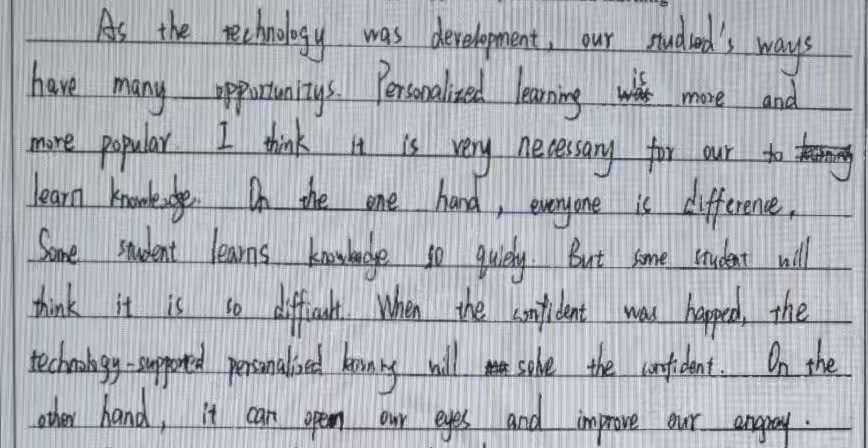 As the technology was development, our studsod's ways
have many opportunitys. Personalized learning is more and
more popular. I think it is very necessary for our to
learn knowledge. On the one hand, everyone is difference,
Some student learns knowledge so quiely. But some student will
think it is so difficult. When the confident was happed, the
technology-supported personalized learning will solve the confident. On the
other hand, it can open our eyes and improve our